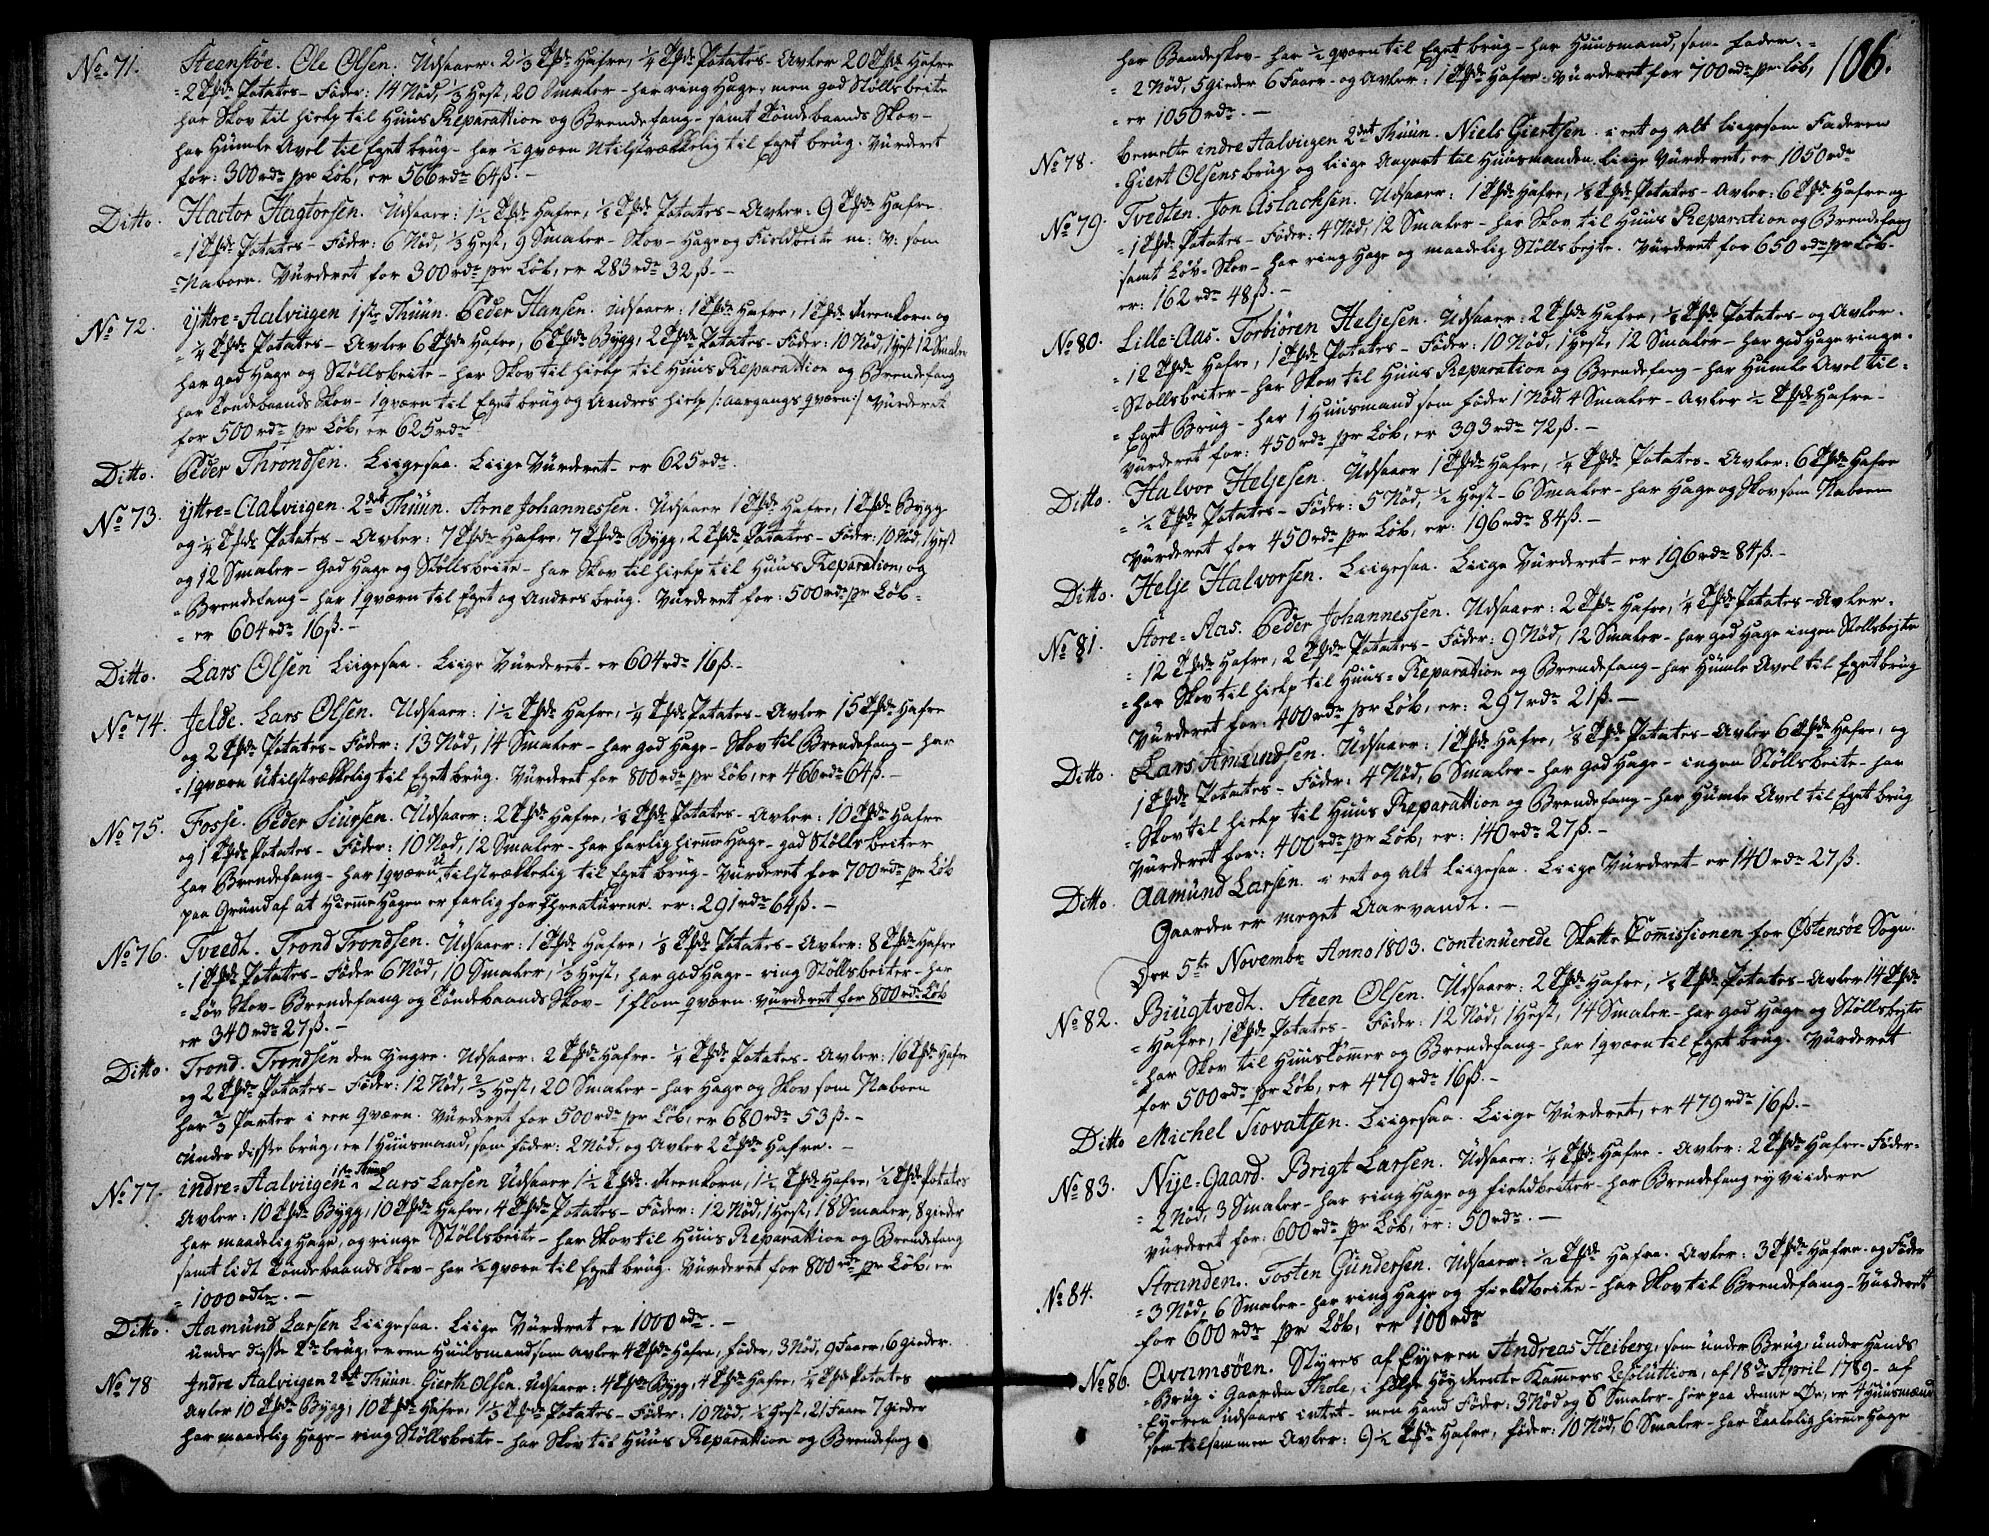 No. 71. Steenstøe. Ole Olsen. Udsaaer: 2 1/3 Tpde Hafre, 1/4 Tpde Potates - Avler 20 Tpde Hafre
= 2 Tpde Potates - Föder: 14 Nöd, 1/3 Hest, 20 Smaler - har ring Hage, men god Stöllsbeite
har Skov til hielp til Huus Reparattion og Brendefang - samt Töndebaands Skov -
har Humle Avel til Eget brug - har 1/2 qværn Utilstrækkelig til Eget brug. Vurderet
for: 300 rdr pr Löb, er 566 rdr 64 ß. -
Ditto. Hactor Hagtorsen. Udsaaer: 1 1/2 Tpde Hafre, 1/8 Tpde Potates - Avler: 9 Tpde Hafre
= 1 Tpde Potates - Föder: 6 Nöd, 1/3 Hest, 9 Smaler - Skov - Hage og Fieldbeite m: v: som
Naboen. Vurderet for 300 rdr pr Löb, er 283 rdr 32 ß. -
No 72. Yttre = Aalviigen 1ste Thuun. Peder Hansen. Udsaaer: 1 Tpde Hafre, 1 Tpde Reenkorn og
= 1/4 Tpde Potates - Avler 6 Tpde Hafre, 6 Tpde Bygg, 2 Tpde Potates - Föder: 10 Nöd, 1 Hest 12 Smaler
har god Hage og Stöllsbeite - har Skov til hielp til Huus Reparattion og Brendefang
har Töndebaands Skov - 1 qværn til Eget brug og Andres hielp /: Aargangs qværn :/ Vurderet
for 500 rdr pr Löb, er 625 rdr
Ditto. Peder Throndsen. Liigesaa. Liige Vurderet - er 625 rdr.
No 73. Yttre = Aalviigen. 2det Thuun. Arne Johannessen. Udsaaer 1 Tpde Hafre, 1 Tpde Bygg
og 1/4 Tpde Potates - Avler: 7 Tpde Hafre, 7 Tpde Bygg, 2 Tpde Potates - Föder: 10 Nöd, 1 Hest
og 12 Smaler - God Hage og Stöllsbeite - har Skov til hielp til Huus Reparation, og
= Brendefang - har 1 qværn til Eget og Andres brug. Vurderet for: 500 rdr pr Löb =
= er 604 rdr 16 ß. -
Ditto. Lars Olsen Liigesaa. Liige Vurderet - er 604 rdr 16 ß. -
No 74. Jelde. Lars Olsen. Udsaaer: 1 1/2 Tpde Hafre, 1/4 Tpde Potates - Avler 15 Tpde Hafre
og 2 Tpde Potates - Föder: 13 Nöd, 14 Smaler - har god Hage - Skov til Brendefang - har
= 1 qværn utilstrækkelig til Eget brug. Vurderet for 800 rdr pr Löb, er 466 rdr 64 ß. -
No 75. Fosse. Peder Siursen. Udsaaer: 2 Tpde Hafre, 1/8 Tpde Potates - Avler: 10 Tpde Hafre
og 1 Tpde Potates - Föder: 10 Nöd, 12 Smaler - har farlig hieme Hage - god Stöllsbeiter
har Brendefang - har 1 qværn utilstrækkelig til Eget brug - Vurderet for 700 rdr pr Löb
paa Grund af at Hieme Hagen er farlig for Chreaturene. er: 291 rdr 64 ß. -
No 76. Tveedt. Trond Trondsen. Udsaaer: 1 Tpde Hafre, 1/8 Tpde Potates - Avler: 8 Tpde Hafre
= 1 Tpde Potates - Föder 6 Nöd, 10 Smaler, 1/3 Hest, har god Hage - ring Stöllsbeiter - har
= Löv Skov - Brendefang og Töndebaands Skov - 1 flom qværn. Vurderet for 800 rdr Löb
er 340 rdr 27 ß. -
Ditto. Trond. Trondsen den Yngre. Udsaaer: 2 Tpde Hafre - 1/4 Tpde Potates - Avler: 16 Tpde Hafre
og 2 Tpde Potates - Föder: 12 Nöd, 2/3 Hest, 20 Smaler - har Hage og Skov som Naboen
har 2/3 Parter i een qværn. Vurderet for 500 rdr pr Löb, er 680 rdr 53 ß. -
Under disse brug, er 1 Huusmand, som föder: 2 Nöd, og Avler 2 Tpde Hafre. -
No 77. indre = Aalviigen 1ste Thun Lars Larsen Udsaaer 1 1/2 Tpde Reenkorn, 1 1/2 Tpde Hafre, 1/2 Tpde Potates
Avler: 10 Tpde Bygg, 10 Tpde Hafre, 4 Tpde Potates - Föder: 12 Nöd, 1 Hest, 18 Smaler, 8 gieder
har maadelig Hage, og ringe Stöllsbeite - har Skov til Huus Reparattion og Brendefang
samt lidt Töndebaands Skov - har 1/2 qværn til Eget brug. Vurderet for 800 rdr pr Löb, er
= 1000 rdlr. -
Ditto. Aamund Larsen Liigesaa. Liige Vurderet er 1000 rdr. -
Under disse 2de brug, er een Huusmand som Avler 4 Tpde Hafre, föder, 3 Nöd, 9 Faaer, 6 gieder.
No 78 Indre Aalviigen 2det Thuun. Gierth Olsen. Udsaaer: 4 Tpde Bygg, 4 Tpde Hafre, 1/4 Tpde Potates
Avler 10 Tpde Bygg, 10 Tpde Hafre, 1 1/3 Tpde Potates - Föder: 10 Nöd, 1/2 Hest, 21 Faaer 7 gieder
har maadelig Hage - ring Stöllsbeite - har Skov til Huus Reparattion og Brendefang
106.
har Baandeskov - har 1/2 qværn til Eget brug - har Huusmand, som Föder: =
= 2 Nöd, 5 gieder 6 Faaer - og Avler: 1 Tpde Hafre - Vurderet for 700 rdr pr Löb,
= er 1050 rdr. -
No 78. bemelte indre Aalviigen 2det Thuun. Niels Giertsen. i eet og Alt liigesom Faderen
= Giert Olsens brug og liige Anpart til Huusmanden. Liige Vurderet, er 1050 rdr
No 79. Tvedten. Jon Aslachsen. Udsaaer: 1 Tpde Hafre, 1/8 Tpde Potates - Avler: 6 Tpde Hafre og
= 1 Tpde Potates - Föder: 4 Nöd, 12 Smaler - har Skov til Huus Reparation og Brendefang
samt Löv = Skov - har ring Hage og maadelig Stöllsbeite. Vurderet for 650 rdr pr Löb -
er: 162 rdr 48 ß. -
No 80. Lille = Aas. Torbiören Heljesen. Udsaaer: 2 Tpde Hafre, 1/8 Tpde Potates - og Avler.
= 12 Tpde Hafre, 1 Tpde Potates - Föder: 10 Nöd, 1 Hest, 12 Smaler - har god Hage ringe.
= Stöllsbeiter - har Skov til Huus Reparation og Brendefang - har Humle Avel til =
= Eget Brug - har 1 Huusmand som föder 1 Nöd, 4 Smaler - Avler 1/2 Tpde Hafre -
Vurderet for: 450 rdr pr Löb, er 393 rdr 72 ß. -
Ditto. Halvor Heljesen. Udsaaer 1 Tpde Hafre, 1/4 Tpde Potates - Avler: 6 Tpde Hafre
= 1/2 Tpde Potates - Föder: 5 Nöd, 1/2 Hest - 6 Smaler - har Hage og Skov som Naboen
Vurderet for 450 rdr pr Löb, er: 196 rdr 84 ß. -
Ditto. Helje Halvorsen. Liigesaa. Liige Vurderet - er 196 rdr 84 ß. -
No 81. Store = Aas. Peder Johannessen. Udsaaer: 2 Tpde Hafre, 1/4 Tpde Potates - Avler.
= 12 Tpde Hafre, 2 Tpde Potates - Föder: 9 Nöd, 12 Smaler - har god Hage ingen Stöllsbeite
= Har Skov til hielp til Huus = Reparattion og Brendefang - har Humle Avel til Eget brug
Vurderet for: 400 rdr pr Löb, er: 297 rdr 21 ß. -
Ditto. Lars Amundsen. Udsaaer: 1 Tpde Hafre, 1/8 Tpde Potates - Avler 6 Tpde Hafre, og
1 Tpde Potates - Föder: 4 Nöd, 6 Smaler - har god Hage - ingen Stöllsbeite - har
= Skov til hielp til Huus Reparattion og Brendefang - har Humle Avel til Eget brug
Vurderet for: 400 rdr pr Löb, er: 140 rdr 27 ß. -
Ditto. Aamund Larsen. i eet og Alt liigesaa. Liige Vurderet er 140 rdr 27 ß.
Gaarden er meget Aarvandt. -
Den 5te Novembr Anno 1803. Continuerede Skatte Comissionen for Østensöe Sogn.
No 82. Biugtvedt. Steen Olsen. Udsaaer: 2 Tpde Hafre, 1/8 Tpde Potates - Avler 14 Tpde
= Hafre, 1 Tpde Potates - Föder: 12 Nöd, 1 Hest, 14 Smaler - har god Hage og Stöllsbeite
= har Skov til Huustömer og Brendefang - har 1 qværn til Eget brug. Vurderet
for 500 rdr pr Löb, er 479 rdr 16 ß. -
Ditto Michel Siovatsen. Liigesaa. Liige Vurderet, er 479 rdr 16 ß. -
No 83. Nye = Gaard. Brigt Larsen. Udsaaer: 1/4 Tpde Hafre - Avler: 2 Tpde Hafre - Föder:
= 2 Nöd, 3 Smaler - har ring Hage og fieldbeiter - har Brendefang ey viidere
Vurderet for: 600 rdr pr Löb, er: 50 rdr. -
No 84. Stranden. Tosten Gundersen. Udsaaer: 1/2 Tpde Hafre. Avler: 3 Tpde Hafre. og Föder
= 3 Nöd, 6 Smaler - har ring Hage og fieldbeite - har Skov til Brendefang - Vurderet
for 600 rdr pr Löb, er 100 rdr
No 86. Qvamsöen. Styres af Eyeren Andreas Heiberg, som under Brug, under Hands
= Brug i Gaarden Thole, i fölge Höy Rente Kamers Resoluttion, af 18de April 1789 - af
Eyeren udsaaes intet - men Hand Föder: 3 Nöd og 6 Smaler - her paa denne Öe, er 4 Huusmænd
som tilsammen Avler: 9 1/2 Tpde Hafre, föder: 10 Nöd, 6 Smaler - har Taalelig hieme Hage